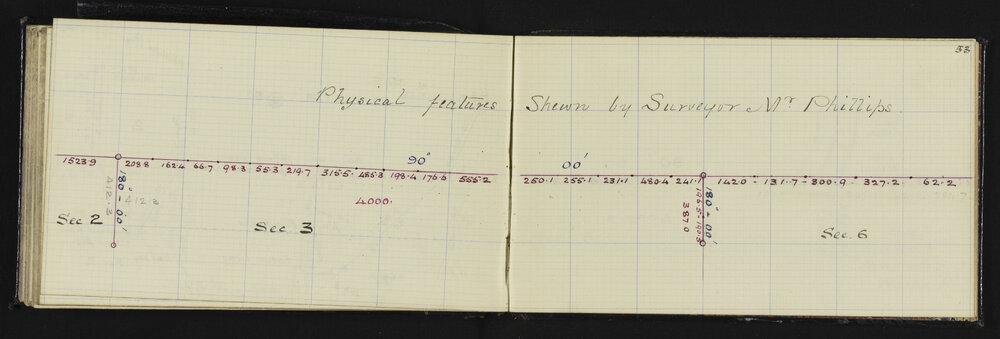 53
Physical features Shewn by Surveyor Mr Phillips.
90° 00'
1523.9 208.8 162.4 66.7 98.3 55.3 219.7 315.5 485.3 198.4 176.6 555.2 250.1 255.1 231.1 480.4 241.7 142.0 131.7 300.9 327.2 62.2
4000.
180° - 00'
412.3
412.3
180° - 00'
387.0
Sec 2 Sec. 3 Sec. 6